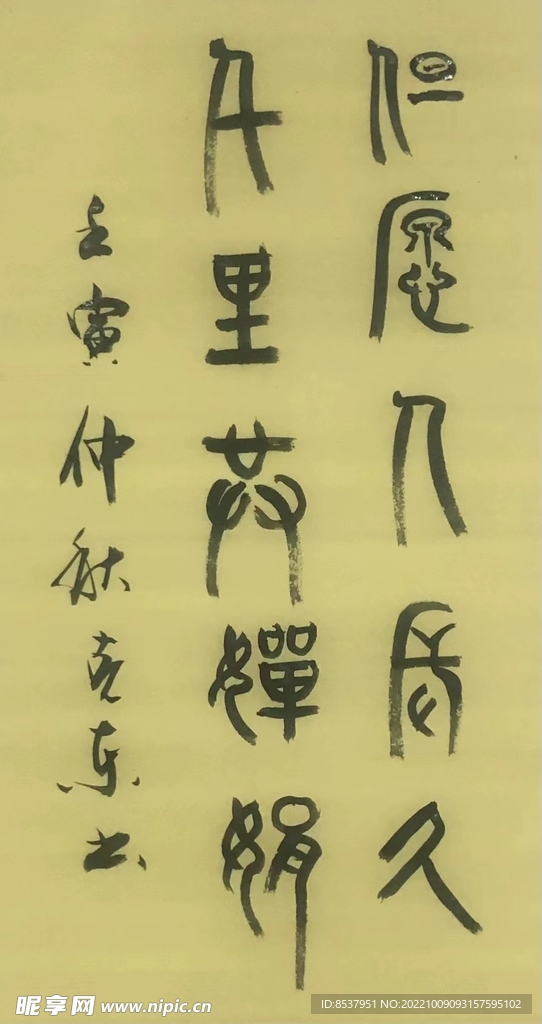 但愿人长久
千里共婵娟
壬寅仲秋克东书
昵享网 www.nipic.cn
ID:8537951 NO:20221009093157595102